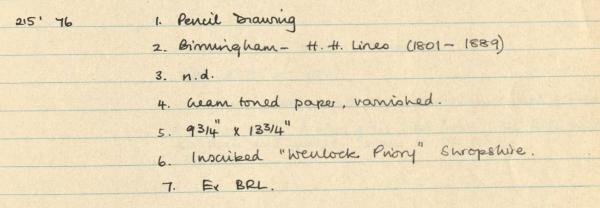 215' 76 1. Pencil Drawing
2. Birmingham - H. H. Lines (1801 - 1889)
3. n.d.
4. Cream toned paper, varnished.
5. 9 3/4" x 13 3/4"
6. Inscribed "Wenlock Priory" Shropshire.
7. Ex BRL.